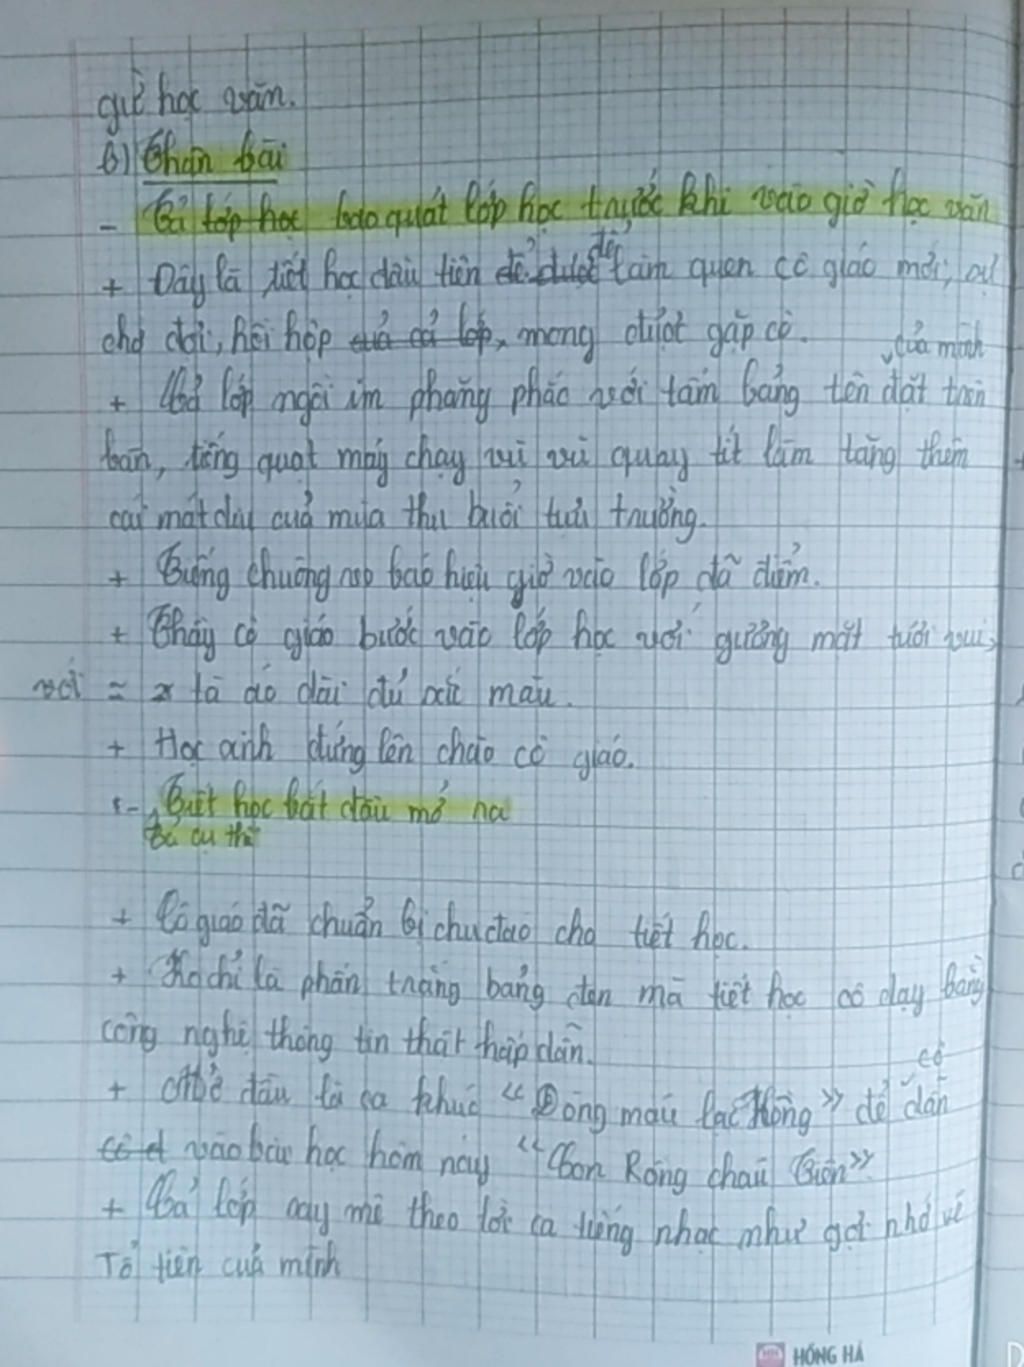 giờ học văn.
b) Thân bài
- Tả lớp học bao quát lớp học trước khi vào giờ học văn
+ Đây là tiết học đầu tiên để được để làm quen cô giáo mới, sự
chờ đợi, hồi hộp của cả lớp, mong được gặp cô.
+ Cả lớp ngồi im phăng phắc với tấm bảng tên của mình đặt trên
bàn, tiếng quạt máy chạy vù vù quay tít làm tăng thêm
cái mát dịu của mùa thu buổi tựu trường.
+ Tiếng chuông reo báo hiệu giờ vào lớp đã điểm.
+ Thấy cô giáo bước vào lớp học với gương mặt tươi vui,
với = tà áo dài đủ sắc màu.
+ Học sinh đứng lên chào cô giáo.
- Tiết học bắt đầu mở ra
Tả cụ thể
+ Cô giáo đã chuẩn bị chu đáo cho tiết học.
+ Ko chỉ là phấn trắng bảng đen mà tiết học cô dạy bằng
công nghệ thông tin thật hấp dẫn.
+ Mở đầu là ca khúc "Dòng máu Lạc Hồng" để cô dẫn
vào bài học hôm nay "Con Rồng cháu Tiên"
+ Cả lớp say mê theo lời ca tiếng nhạc như gợi nhớ về
Tổ tiên của mình
HỒNG HÀ